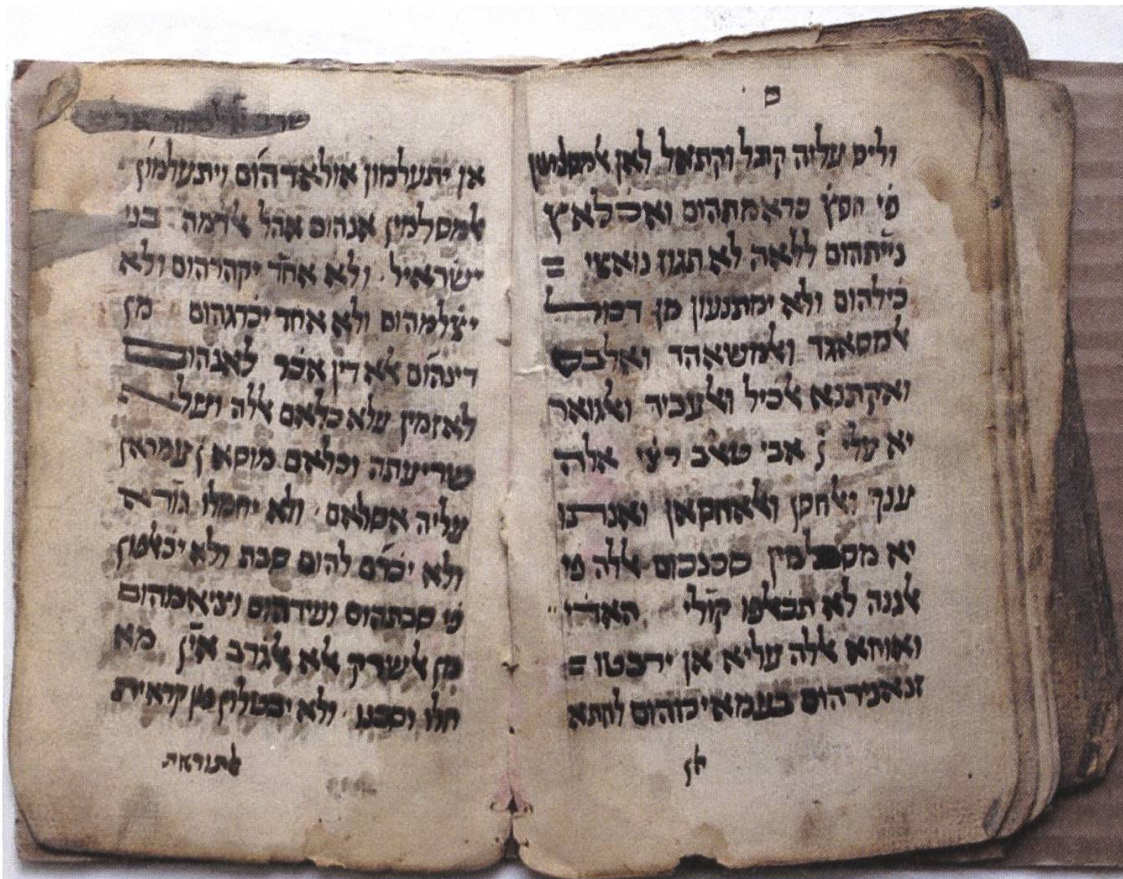 ם
וליס עליה קתל וקתאל לאן
פי חפץ כראמתהום
נייתהום ללאה לא תגוז נואצי
כילהום ולא ימתנעון מן דכול
ﭏמסאגד וﭏמשאהד ואלבס
ואקתנא ﭏכיל וﭏעביד וﭏגואר
יא עלי ן אבי טאﭏב רצי אלה
ענך וﭏחסן וﭏאחסאן
יא מסﭏמין סכנכום ﭏלה פי
ﭏגנה לא תכﭏפו קולי האדי
ואוחא ﭏלה עליא אן ירבטו
זנאנירהום בעמאימהום לחתא
אן
אן יתעלמון אולאדהום ויתעלמון
ﭏמסלמין אנהום אהל ﭏדמה בני
ישראיל ולא אחד יקהרהום ולא
יצלמהום ולא אחד יכרגהום מן
דינהום ﭏא דין אכר לאנהום
לאזמין עלא כלאם ﭏלה ועל
שריעתה וכלאם מוסא ן עמראן
עליה אסלאם ולא יחמלו
ולא יכרם להום סבת ולא יבﭏטון
פי סבתהום ועידהום וציאמהום
מן ﭏשרק ﭏא ﭏגרב אין מא
חלו וסכנו ולא יבטלון מן קראית
ﭏתוראת